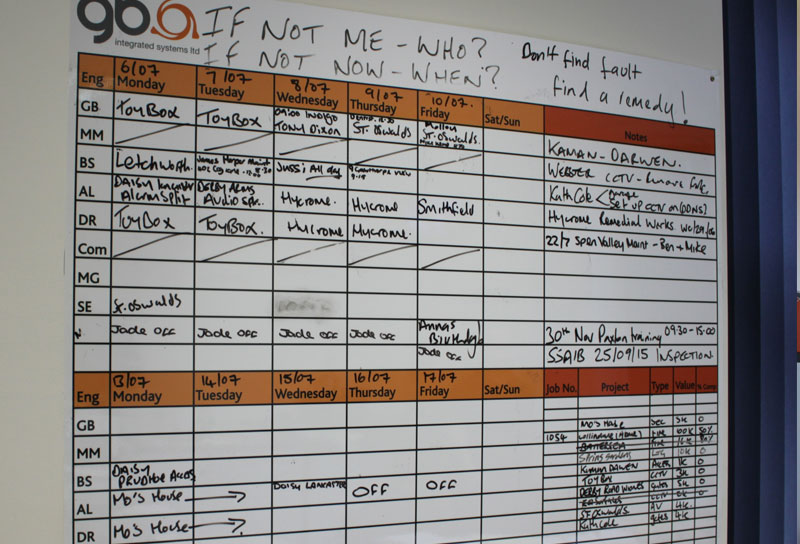 gba
integrated systems ltd
IF NOT ME - WHO?
IF NOT NOW - WHEN?
Don't find fault
find a remedy!
Eng 6/07 Monday 7/07 Tuesday 8/07 Wednesday 9/07 Thursday 10/07. Friday Sat/Sun Notes
GB ToyBox ToyBox Tony Dixon ST. OSWALDS ST. OSWALDS
KAMAN - DARWEN.
MM
WEBBER CCTV - Remove
BS Letchworth Jussi All day
Kath Cole Set up CCTV on (DDNS)
AL DAISY Alarm Split DERBY ARMS AUDIO Hycrome. Hycrome Smithfield
Hycrome Remedial Works
DR ToyBox ToyBox. Hycrome Hycrome.
22/7 Spen Valley Maint - Ben + Mike
Com
MG
SE St. Oswalds
Jade OFF Jade OFF Jade OFF Jade OFF Annas Birthday Jade OFF
30th Nov Paxton training 09:30 - 15:00
SSAIB 25/09/15 INSPECTION
Eng 13/07 Monday 14/07 Tuesday 15/07 Wednesday 16/07 Thursday 17/07 Friday Sat/Sun Job No. Project Type Value % Comp
GB
Mo's House SEC 5K 0
1054 100K 50%
MM
BATTERSEA
10K 0
KAMAN DARWEN 1K 0
BS DAISY PRUDHOE ACCESS DAISY LANCASTER OFF OFF
TOYBOX CCTV 3K 0
DERBY ROAD WORKS Gates 5K 0
AL Mo's House →
CCTV 0
ST OSWALDS AV 4K
Kath Cole Gates 4K
DR Mo's House → ?